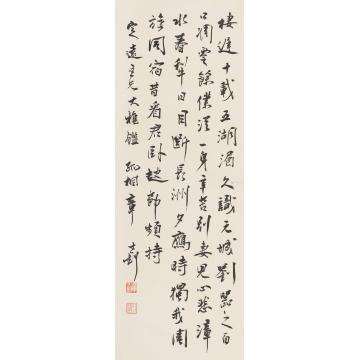 棲遲十載五湖湄久識元城劉器之百
口凋零餘僕從一身辛苦別妻兒心悲漳
水春犁日目斷長洲夕鴈時獨我周
旋同宿昔看君卧起節頻持
定遠吾兄大雅鑒 孤桐章士釗